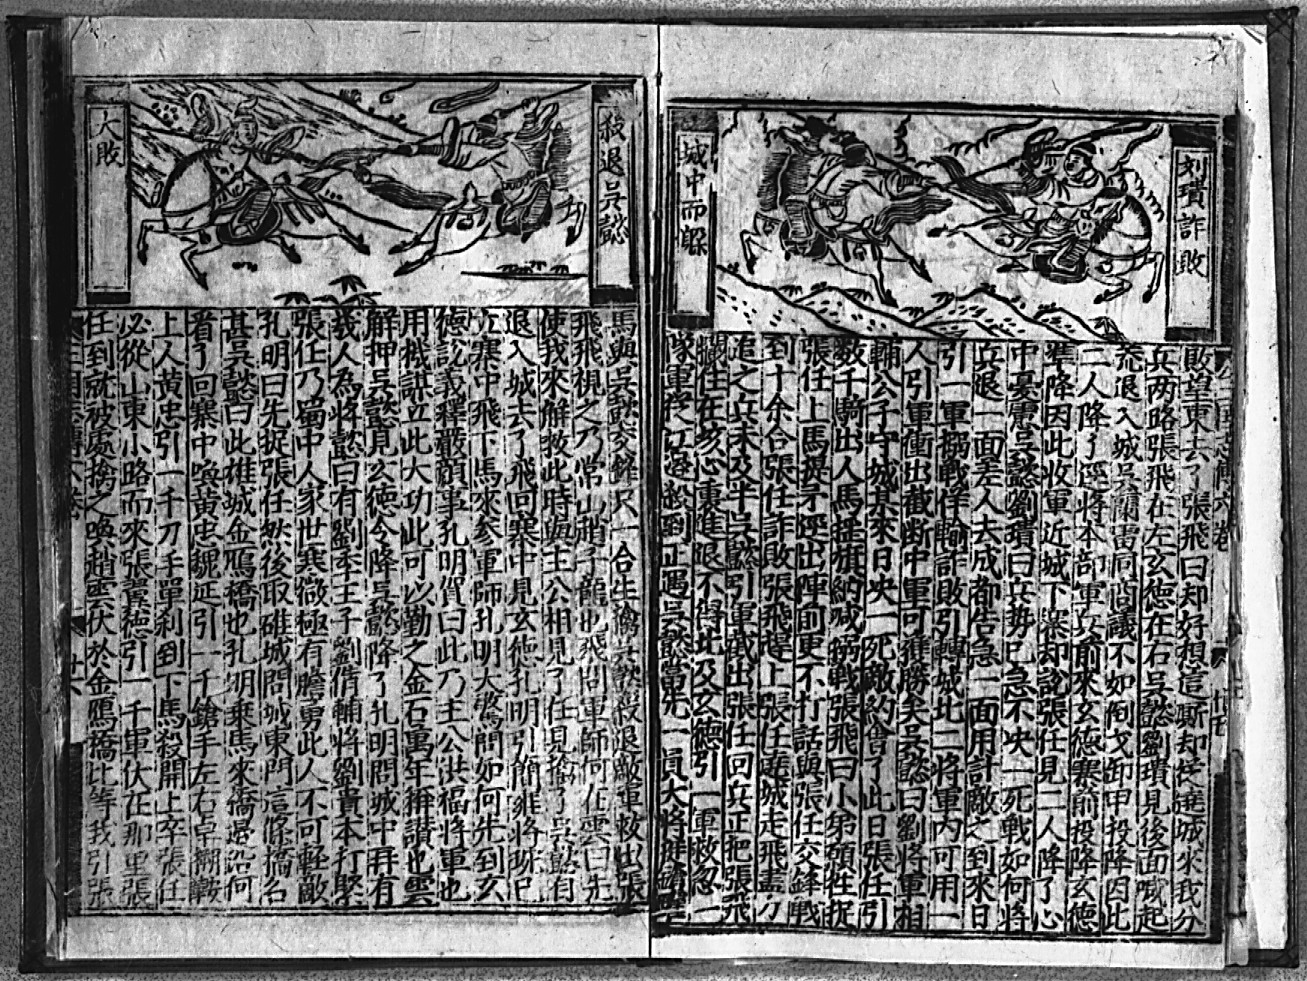 刘璝詐敗
城中而躲
敗望東去了張飛曰却好想這厮却從遶城來我分
兵两路張飛在左玄徳在右吳懿劉璝見後面喊起
荒退入城吳蘭雷同商議不如倒戈卸甲投降因此
二人降了逕將本部軍兵前來玄徳寨前投降玄徳
準降因此收軍近城下寨却説張任見二人降了心
中憂慮吳懿劉璝曰兵勢已急不决一死戰如何將
兵退一面差人去成都告急一面用計敵之到來日
引一軍搦戰佯輸詐敗引轉城北二將軍内可用一
人引軍衝出截断中軍可獲勝矣吳懿曰劉將軍相
輔公子守城某來日决一死敵約會了此日張任引
数千騎出人馬摇旗納喊搦戰張飛曰小弟須牲捉
張任上馬提矛逕出陣前更不打話與張任交鋒戰
到十余合張任詐敗張飛趕上張任遶城走飛盡力
追之兵未及半吳懿引軍截出張任回兵正把張飛
攔住在垓心裏進退不得此及玄徳引一軍救忽一
隊軍從江邉殺到正遇吳懿當先一員大將挺鎗
殺退吳懿
大敗
馬與吳懿交鋒只一合生擒吳懿殺退敵軍救出張
飛飛視之乃常山趙子龍也飛问軍師何在雲曰先
使我來解救此時與主公相見了任見擒了吳懿自
退入城去了飛回寨中見玄徳孔明引簡雍將琬已
在寨中飛下馬來参軍師孔明大驚問如何先到玄
徳説義釋嚴顔事孔明賀曰此乃主公洪福將軍也
用机謀立此大功此可以勤之金石萬年稱讃也雲
解押吳懿見玄徳令降吳懿降了孔明問城中再有
幾人為將懿曰有劉季王子劉循輔將劉貴本打緊
張任乃蜀中人家世寒微極有膽勇此人不可輕敵
孔明曰先捉張任然後取雒城問城東門這條橋名
甚吳懿曰此雄城金鴈橋也孔明乗馬來橋邉沿河
看了回寨中喚黄忠魏延引一千鎗手左右卓
上人黄忠引一千刀手單剁到下馬殺開上卒張任
必從山東小路而來張翼徳引一千軍伏在那里張
任到就被處擒之喚趙雲伏於金鴈橋北等我引張